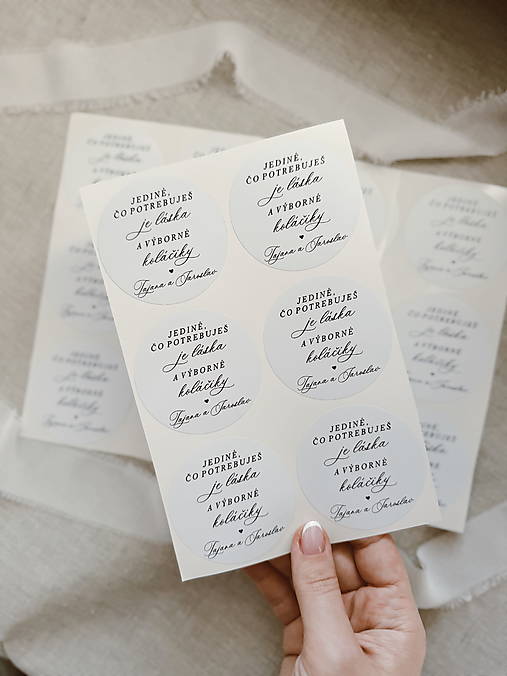 JEDINĚ,
ČO POTREBUJEŠ
je láska
A VÝBORNÉ
koláčiky
Tajana a Jaroslav
JEDINĚ,
ČO POTREBUJEŠ
je láska
A VÝBORNÉ
koláčiky
Tajana a Jaroslav
JEDINĚ,
ČO POTREBUJEŠ
je láska
A VÝBORNÉ
koláčiky
Tajana a Jaroslav
JEDINĚ,
ČO POTREBUJEŠ
je láska
A VÝBORNÉ
koláčiky
Tajana a Jaroslav
JEDINĚ,
ČO POTREBUJEŠ
je láska
A VÝBORNÉ
koláčiky
Tajana a Jaroslav
JEDINĚ,
ČO POTREBUJEŠ
je láska
A VÝBORNÉ
koláčiky
Tajana a Jaroslav